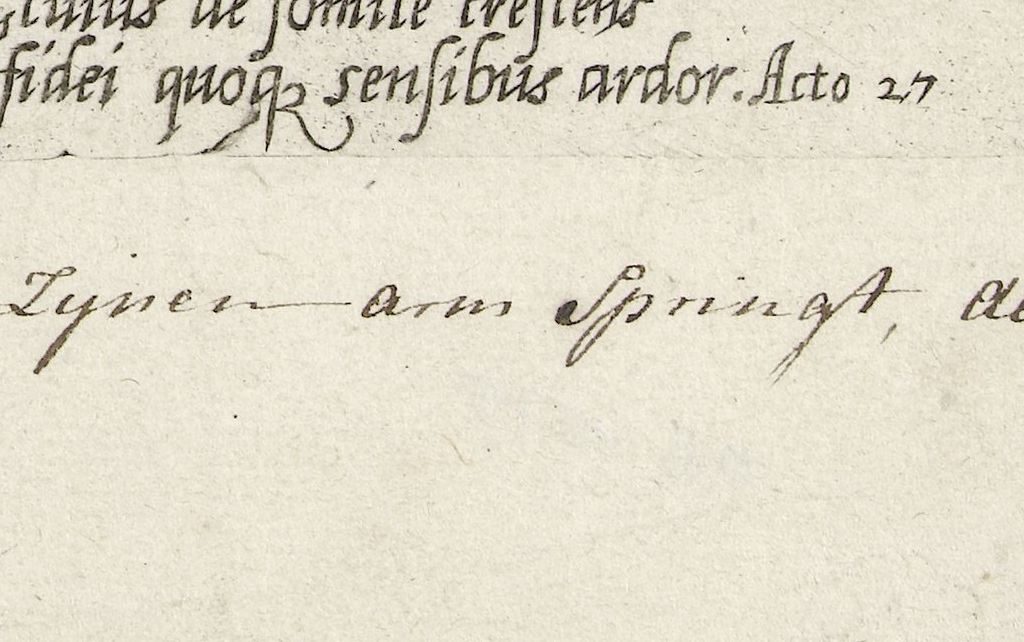 de fomite crescens
fidei quoq, sensibus ardor. Acto 27
Zynen arm Springt,